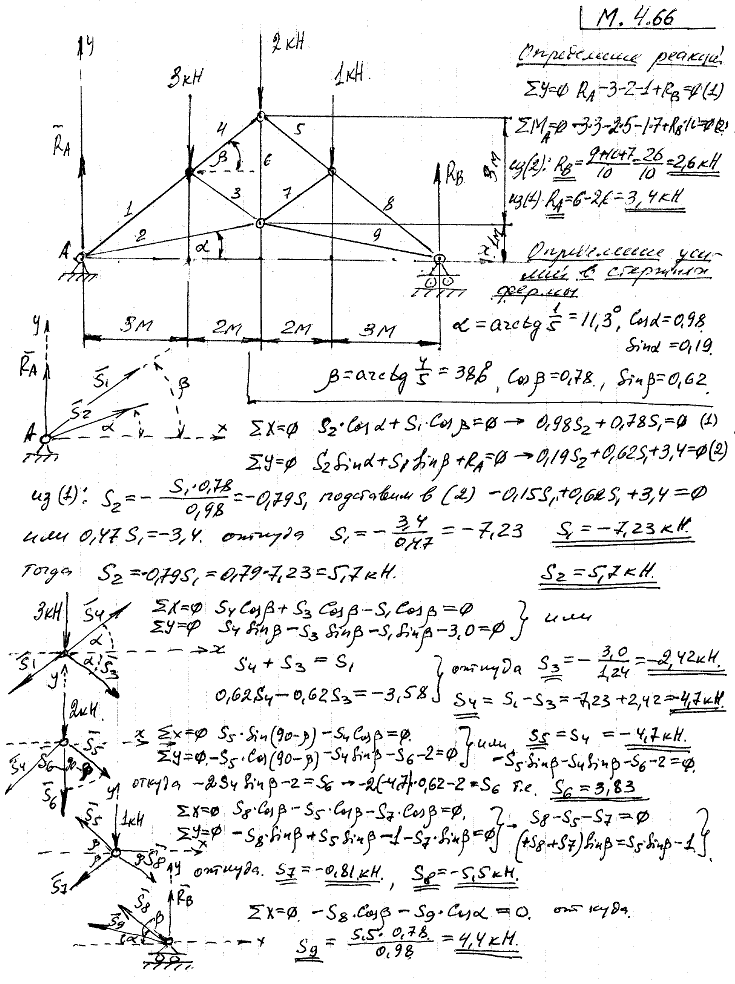 М. 4.66
Определение реакций.
ΣY=0 R_A-3-2-1+R_B=0 (1)
ΣM_A=0 -3·3-2·5-1·7+R_B·10=0 (2)
из(2): R_B = (9+10+7)/10 = 26/10 = 2,6 кН
из(1) R_A=6-2,6=3,4 кН
y
2кН
3кН
1кН.
R̄_A
R_B
4 5
β
6
3м
1 3 7 8
2 α 9
A
x
1м
3м 2м 2м 3м
Определение уси-
лий в стержнях
фермы
α = arctg 1/5 = 11,3°, Cosα=0,98
Sinα=0,19.
β=arctg 4/5 = 38,6, Cosβ=0,78., Sinβ=0,62.
y
R̄_A S̄1 β
S̄2 α
A x
ΣX=0 S2·Cosα+S1·Cosβ=0 → 0,98S2+0,78S1=0 (1)
ΣY=0 S2Sinα+S1Sinβ+R_A=0 → 0,19S2+0,62S1+3,4=0 (2)
из (1): S2=-(S1·0,78)/0,98=-0,79S1 подставим в (2) -0,15S1+0,62S1+3,4=0
или 0,47S1=-3,4. откуда S1=-3,4/0,47=-7,23 S1=-7,23кН.
Тогда S2=-0,79S1=0,79·7,23=5,7кН. S2=5,7кН.
3кН S̄4 α x
S̄1 α S̄3 y
ΣX=0 S4Cosβ+S3Cosβ-S1Cosβ=0
ΣY=0 S4Sinβ-S3Sinβ-S1Sinβ-3,0=0 } или
S4+S3=S1
0,62S4-0,62S3=-3,58 } откуда S3=-3,0/1,24=-2,42кН.
S4=S1-S3=-7,23+2,42=-4,7кН.
2кН. x
S̄4 S6 S̄5
S̄6
ΣX=0 S5·Sin(90-β)-S4Cosβ=0.
ΣY=0.-S5·Cos(90-β)-S4Sinβ-S6-2=0 } или S5=S4=-4,7кН.
-S5Sinβ-S4Sinβ-S6-2=0.
откуда -2S4Sinβ-2=S6 → -2(-4,7)·0,62-2=S6 т.е. S6=3,83
y 1кН
S̄5 β x
β β S̄8
S̄7
ΣX=0 S8·Cosβ-S5·Cosβ-S7·Cosβ=0.
ΣY=0 -S8·Sinβ+S5Sinβ-1-S7·Sinβ=0 } → S8-S5-S7=0
(+S8+S7)Sinβ=S5Sinβ-1 }.
откуда. S7=-0,81кН., S8=-5,5кН.
y
S̄8 R̄_B
S̄9 α β x
ΣX=0. -S8·Cosβ-S9·Cosα=0. откуда.
S9=(5,5·0,78)/0,98=4,4кН.